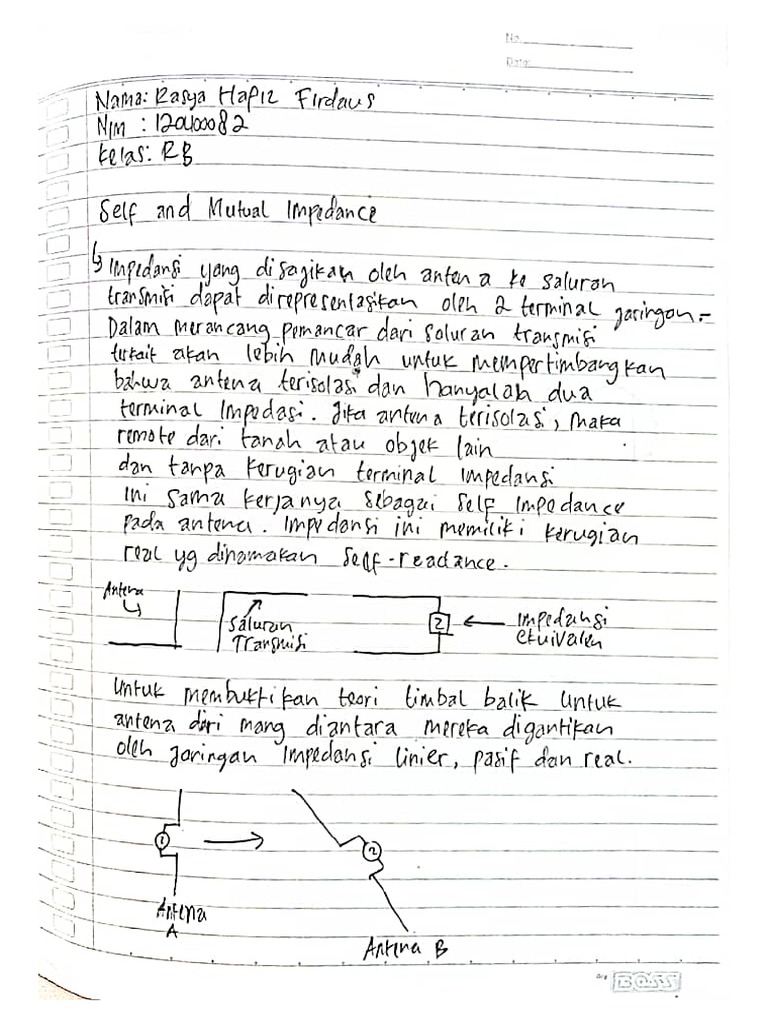 No.
Date:
Nama: Rasya Hafiz Firdaus
NIM : 1201400082
Kelas: RB
Self and Mutual Impedance
↳ Impedansi yang disagikan oleh antena ke saluran
transmisi dapat direpresentasikan oleh 2 terminal jaringan.-
Dalam merancang pemancar dari saluran transmisi
terkait akan lebih mudah untuk mempertimbangkan
bahwa antena terisolasi dan hanyalah dua
terminal Impedasi. Jika antena terisolasi, maka
remote dari tanah atau objek lain
dan tanpa kerugian terminal impedansi
ini sama kerjanya sebagai self impedance
pada antena. Impedansi ini memiliki kerugian
real yg dinamakan self-readance.
Antena
Saluran
Transmisi
Z
Impedansi
ekuivalen
Untuk membuktikan teori timbal balik untuk
antena dari mang diantara mereka digantikan
oleh jaringan impedansi linier, pasif dan real.
1
2
Antena
A
Antena B
BOSS